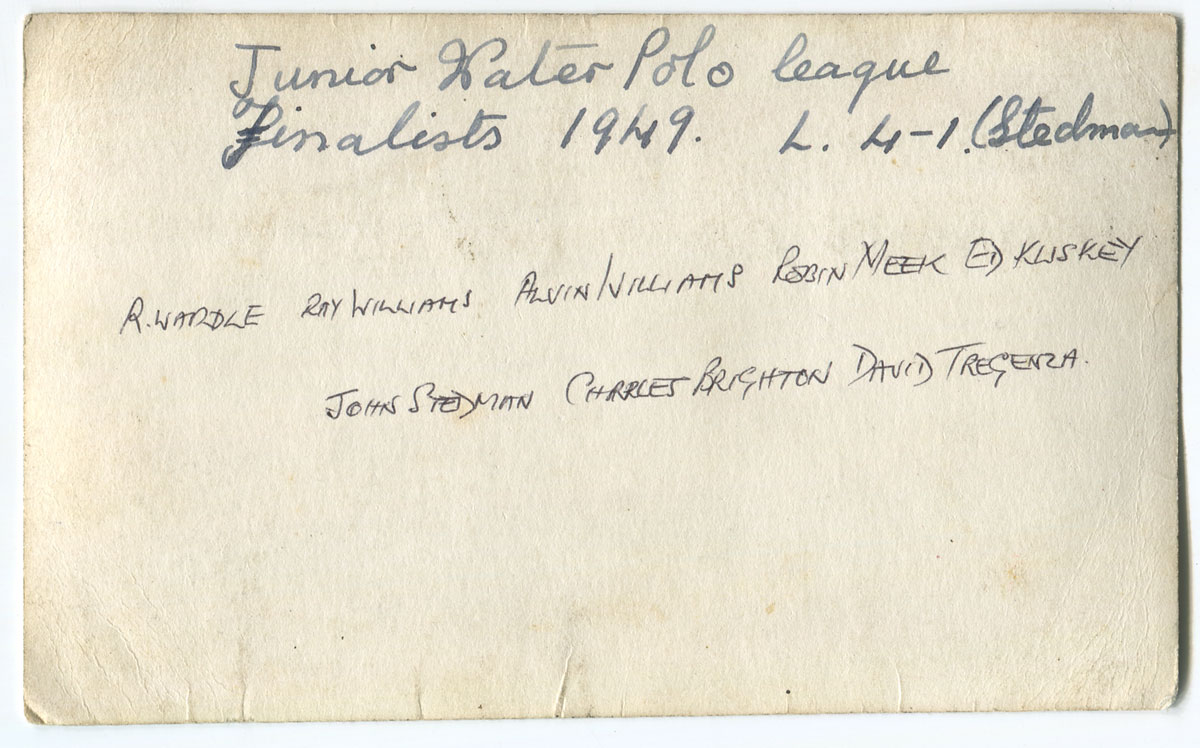 Junior Water Polo league
Finalists 1949. L. 4-1. (Stedman)
R. WARDLE RAY WILLIAMS ALVIN WILLIAMS ROBIN MEEK ED KLISKEY
JOHN STEDMAN CHARLES BRIGHTON DAVID TREGENZA.